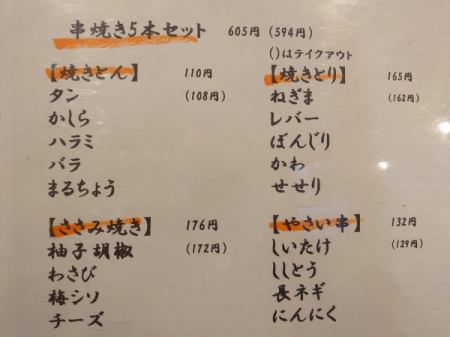 串焼き5本セット 605円 (594円)
()はテイクアウト
【焼きとん】 110円
タン (108円)
かしら
ハラミ
バラ
まるちょう
【焼きとり】 165円
ねぎま (162円)
レバー
ぼんじり
かわ
せせり
【ささみ焼き】 176円
柚子胡椒 (172円)
わさび
梅シソ
チーズ
【やさい串】 132円
しいたけ (129円)
ししとう
長ネギ
にんにく